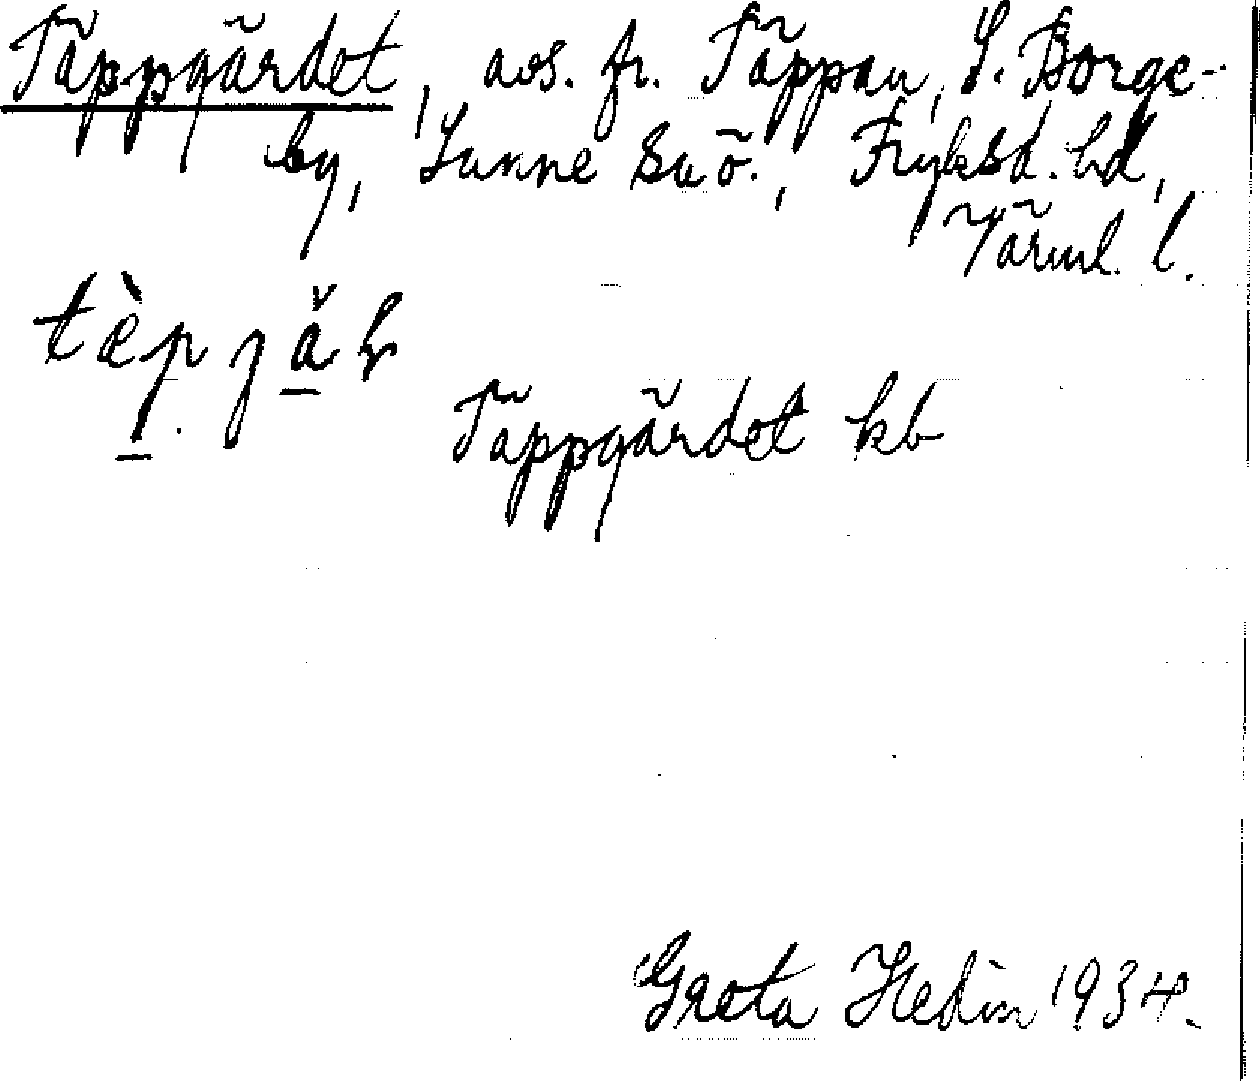 Täppgärdet, avs. fr. Täppan, S. Borge-
by, Sunne sn ö., Fryksd. hd,
Värml. l.
Täppgärdet kb
Greta Hedin 1934.